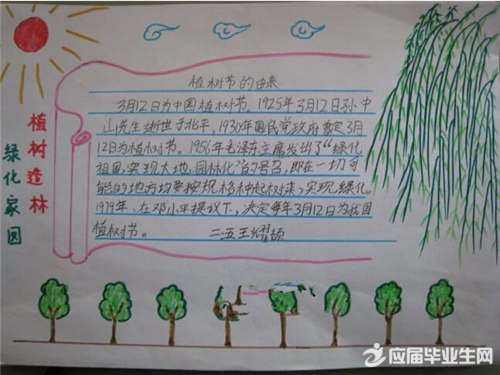 植树节的由来
3月12日为中国植树节,1925年3月12日孙中
山先生逝世于北平,1930年国民党政府暂定3月
12日为植树节。1956年毛泽东主席发出了“绿化
祖国,实现大地园林化”的号召,即在一切可
能的地方均要按规格种起树来,实现绿化。
1979年,在邓小平提议下,决定每年3月12日为我国
植树节。
二五王耀
植树造林
绿化家园
应届毕业生网